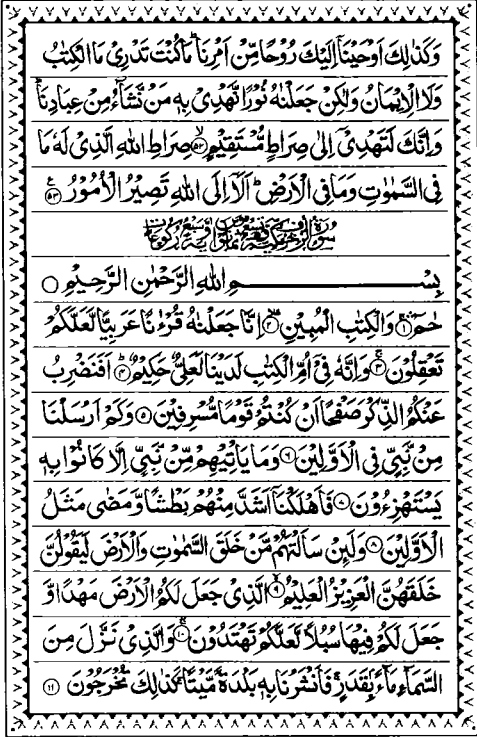 وَكَذٰلِكَ اَوْحَيْنَاۤ اِلَيْكَ رُوْحًا مِّنْ اَمْرِنَا ؕ مَا كُنْتَ تَدْرِىْ مَا الْكِتٰبُ
وَلَا الْاِيْمَانُ وَلٰكِنْ جَعَلْنٰهُ نُوْرًا نَّهْدِىْ بِهٖ مَنْ نَّشَآءُ مِنْ عِبَادِنَا ؕ
وَاِنَّكَ لَتَهْدِىْۤ اِلٰى صِرَاطٍ مُّسْتَقِيْمٍ ۙ‏﴿۵۲﴾ صِرَاطِ اللّٰهِ الَّذِىْ لَهٗ مَا
فِى السَّمٰوٰتِ وَمَا فِى الْاَرْضِ ؕ اَلَاۤ اِلَى اللّٰهِ تَصِيْرُ الْاُمُوْرُ ﴿۵۳﴾ ع
بِسْمِ اللّٰهِ الرَّحْمٰنِ الرَّحِيْمِ ○
حٰمٓ ۚ‏﴿۱﴾ وَالْكِتٰبِ الْمُبِيْنِ ۙ‏﴿۲﴾ اِنَّا جَعَلْنٰهُ قُرْءٰنًا عَرَبِيًّا لَّعَلَّكُمْ
تَعْقِلُوْنَ ۚ‏﴿۳﴾ وَاِنَّهٗ فِىْۤ اُمِّ الْكِتٰبِ لَدَيْنَا لَعَلِىٌّ حَكِيْمٌ ؕ‏﴿۴﴾ اَفَنَضْرِبُ
عَنْكُمُ الذِّكْرَ صَفْحًا اَنْ كُنْتُمْ قَوْمًا مُّسْرِفِيْنَ ﴿۵﴾ وَكَمْ اَرْسَلْنَا
مِنْ نَّبِىٍّ فِى الْاَوَّلِيْنَ ﴿۶﴾ وَمَا يَاْتِيْهِمْ مِّنْ نَّبِىٍّ اِلَّا كَانُوْا بِهٖ
يَسْتَهْزِءُوْنَ ﴿۷﴾ فَاَهْلَكْنَاۤ اَشَدَّ مِنْهُمْ بَطْشًا وَّمَضٰى مَثَلُ
الْاَوَّلِيْنَ ﴿۸﴾ وَلَئِنْ سَاَلْتَهُمْ مَّنْ خَلَقَ السَّمٰوٰتِ وَالْاَرْضَ لَيَقُوْلُنَّ
خَلَقَهُنَّ الْعَزِيْزُ الْعَلِيْمُ ۙ‏﴿۹﴾ الَّذِىْ جَعَلَ لَكُمُ الْاَرْضَ مَهْدًا وَّ
جَعَلَ لَكُمْ فِيْهَا سُبُلًا لَّعَلَّكُمْ تَهْتَدُوْنَ ۚ‏﴿۱۰﴾ وَالَّذِىْ نَزَّلَ مِنَ
السَّمَآءِ مَآءً ۢ بِقَدَرٍ ۚ فَاَنْشَرْنَا بِهٖ بَلْدَةً مَّيْتًا ۚ كَذٰلِكَ تُخْرَجُوْنَ ﴿۱۱﴾